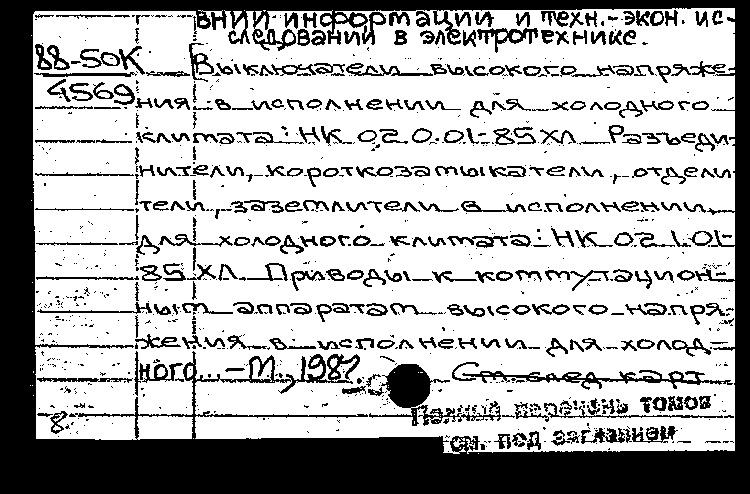 ВНИИ информации и техн.-экон. ис-
следований в электротехнике.
88-50К
4569
Выключатели высокого напряже-
ния в исполнении для холодного
климата: НК 02.0.01-85 ХЛ Разъеди-
нители, короткозамыкатели, отдели-
тели, заземлители в исполнении
для холодного климата: НК 02.1.01-
85 ХЛ Приводы к коммутацион-
ным аппаратам высокого напря-
жения в исполнении для холод-
ного...-М., 1987.
См. след карт
Полный перечень томов
см. под заглавием
8